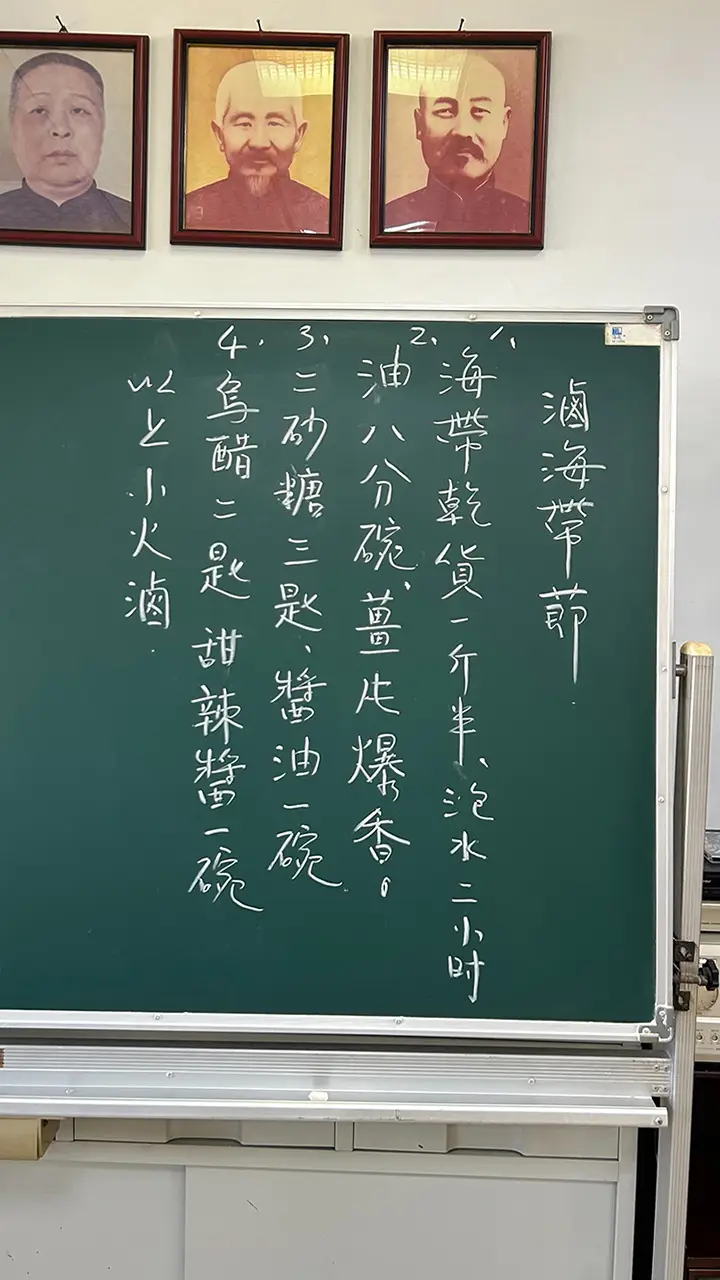 滷海帶節.
1、海帶乾貨一斤半、泡水二小时
2、油八分碗、薑片爆香。
3、二砂糖三匙、醬油一碗
4、烏醋二匙 甜辣醬一碗
以上小火滷.